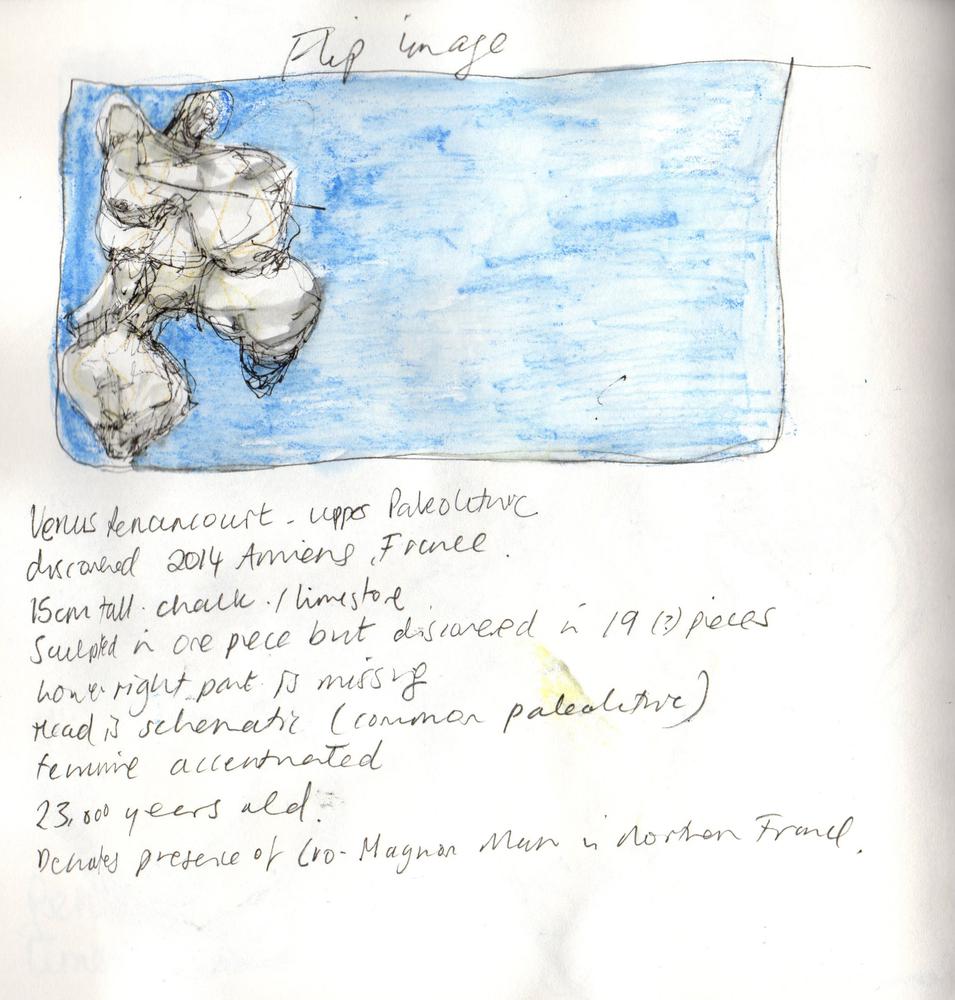 Flip image
Venus Renancourt - upper Paleolithic
discovered 2014 Amiens, France.
15cm tall. chalk. / limestone
Sculpted in one piece but discovered in 19 (?) pieces
Lower right part is missing
Head is schematic (common paleolithic)
feminine accentuated
23,000 years old.
Denotes presence of Cro-Magnon Man in Northern France.